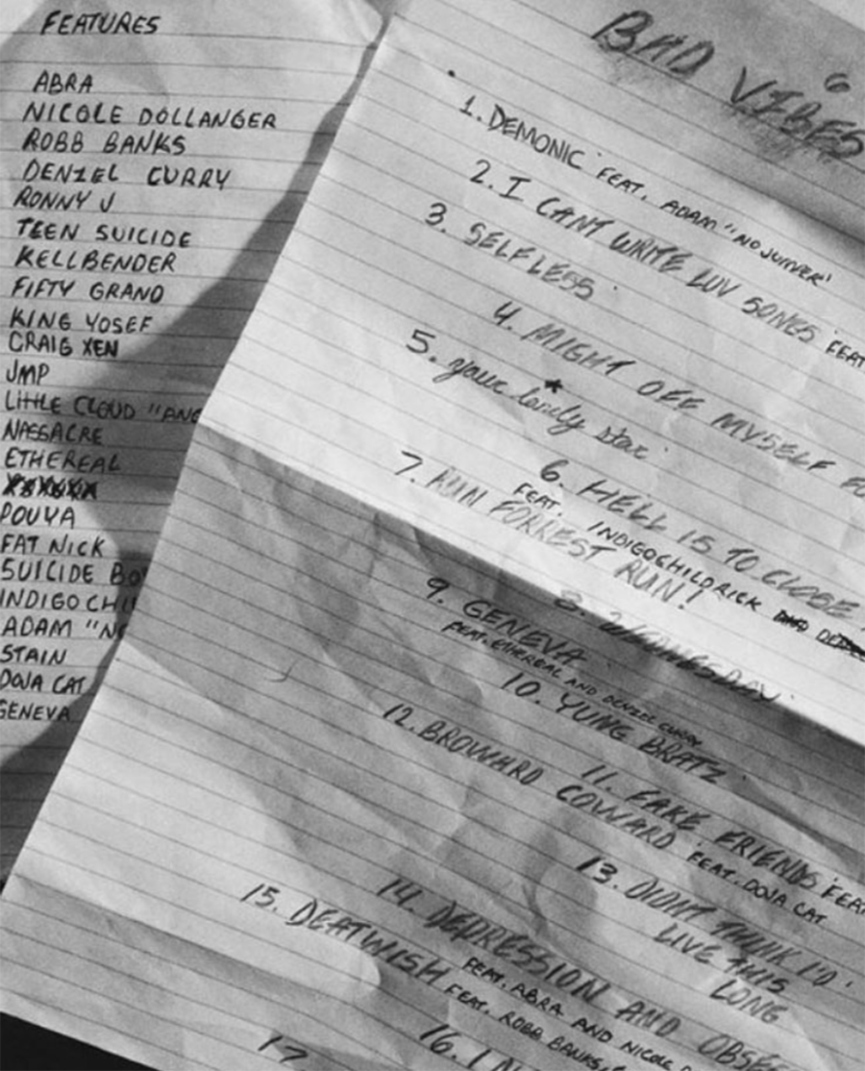 FEATURES
ABRA
NICOLE DOLLANGER
ROBB BANKS
DENZEL CURRY
RONNY J
TEEN SUICIDE
KELLBENDER
FIFTY GRAND
KING YOSEF
CRAIG XEN
JMP
LITTLE CLOUD "ANG
NASSACRE
ETHEREAL
POUYA
FAT NICK
SUICIDE BO
INDIGO CHI
ADAM "NO
STAIN
DOJA CAT
GENEVA
BAD VIBES
6
1. DEMONIC FEAT. ADAM "NO JUMPER"
2. I CANT WRITE LUV SONGS FEAT
3. SELFLESS
4. MIGHT OFF MYSELF
5. your lonely star
6. HELL IS TO CLOSE
FEAT. INDIGOCHILDRICK
7. RUN FORREST RUN!
8.
9. GENEVA
FEAT. ETHEREAL AND DENZEL CURRY
10. YUNG BRATZ
11. FAKE FRIENDS FEA
12. BROWARD COWARD FEAT. DOJA CAT
13. DIDNT THINK I'D
LIVE THIS
LONG
14. DEPRESSION AND OBSE
FEAT. ABRA AND NICOLE D
15. DEATWISH FEAT. ROBB BANKS,
16. I
17